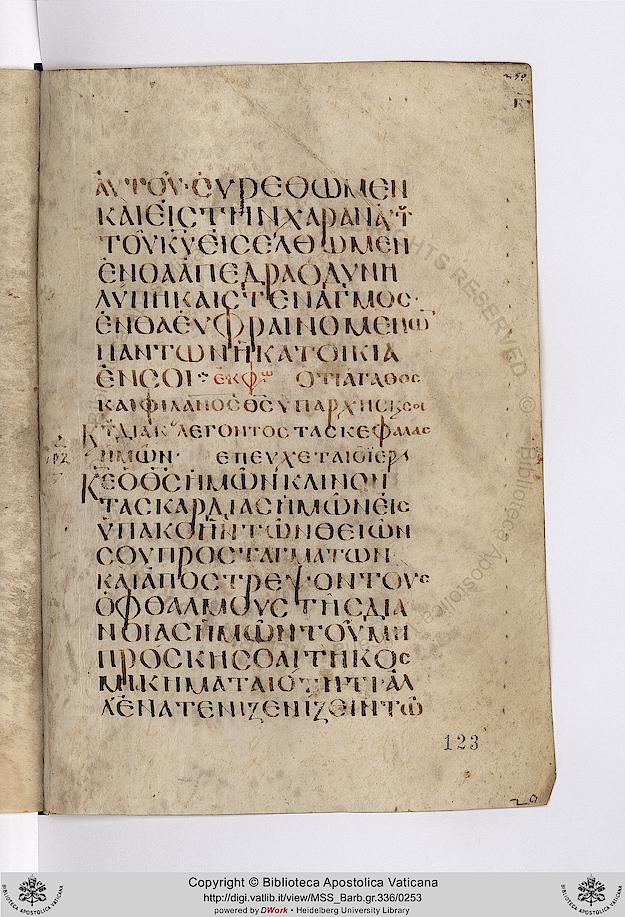 ΑΥΤΟΥ· ΕΥΡΕΘΩΜΕΝ
ΚΑΙ ΕΙΣ ΤΗΝ ΧΑΡΑΝ Α
ΤΟΥ ΚΥ ΕΙΣΕΛΘΩΜΕΝ
ΕΝΘΑ ΑΠΕΔΡΑ ΟΔΥΝΗ
ΛΥΠΗ ΚΑΙ ΣΤΕΝΑΓΜΟΣ·
ΕΝΘΑ ΕΥΦΡΑΙΝΟΜΕΝΩ
ΠΑΝΤΩΝ Η ΚΑΤΟΙΚΙΑ
ΕΝ ΣΟΙ· ΕΚΦω ΟΤΙ ΑΓΑΘΟΣ
ΚΑΙ ΦΙΛΑΝΟΣ ΘΣ ΥΠΑΡΧΗΣ ΚΣΟΙ
ΔΙΑΚ ΛΕΓΟΝΤΟΣ ΤΑΣ ΚΕΦΑΛΑΣ
ΗΜΩΝ· ΕΠΕΥΧΕΤΑΙ Ο ΙΕΡ
ΚΕ Ο ΘΣ ΗΜΩΝ ΚΛΙΝΟΝ
ΤΑΣ ΚΑΡΔΙΑΣ ΗΜΩΝ ΕΙΣ
ΥΠΑΚΟΗΝ ΤΩΝ ΘΕΙΩΝ
ΣΟΥ ΠΡΟΣΤΑΓΜΑΤΩΝ
ΚΑΙ ΑΠΟΣΤΡΕΨΟΝ ΤΟΥΣ
ΟΦΘΑΛΜΟΥΣ ΤΗΣ ΔΙΑ
ΝΟΙΑΣ ΗΜΩΝ ΤΟΥ ΜΗ
ΠΡΟΣΚΗΣΘΑΙ ΤΗ ΚΟΣ
ΜΙΚΗ ΜΑΤΑΙΟΤΗΤΙ ΑΛ
Λ ΕΝΑΤΕΝΙΖΕΝΙΖΕΙΝ ΤΩ
123
Copyright © Biblioteca Apostolica Vaticana
http://digi.vatlib.it/view/MSS_Barb.gr.336/0253
powered by DWork • Heidelberg University Library